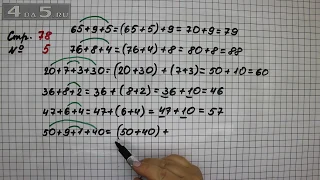 4 DA 5.RU
Стр. 78
№ 5
65+9+5=(65+5)+9=70+9=79
76+8+4=(76+4)+8=80+8=88
20+7+3+30=(20+30)+(7+3)=50+10=60
36+8+2=36+(8+2)=36+10=46
47+6+4=47+(6+4)=47+10=57
50+9+1+40=(50+40)+